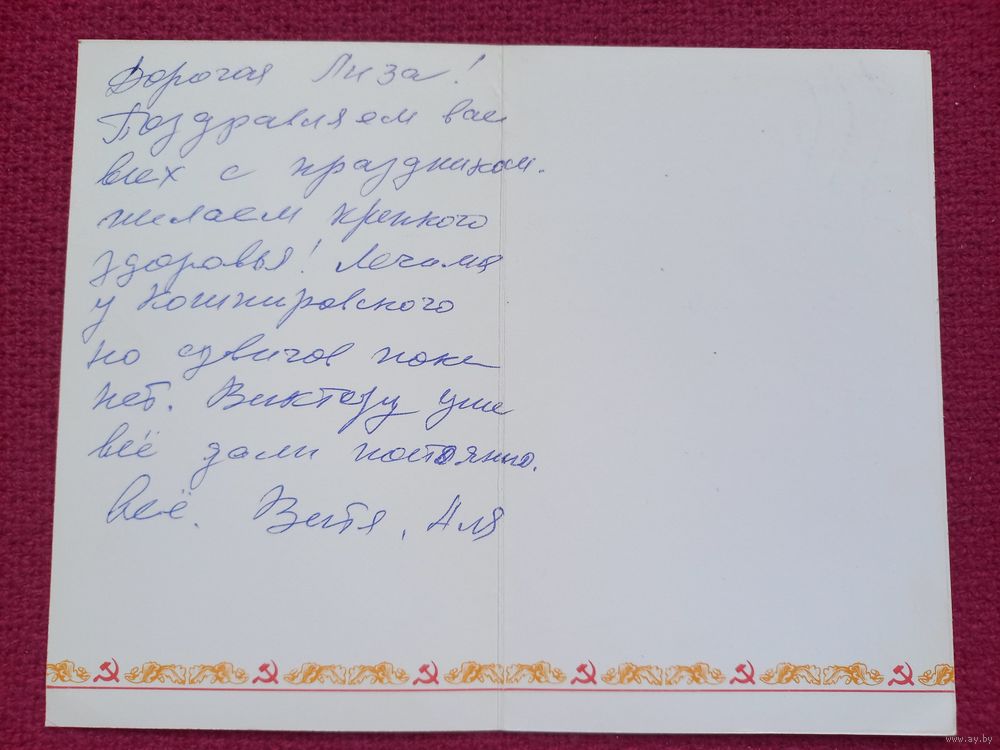 Дорогая Лиза!
Поздравляем вас
всех с праздником.
желаем крепкого
здоровья! Лечимся
у Кошпировского
но сдвигов пока
нет. Виктору уже
всё дали постоянно.
Всё. Витя, Аля
www.ay.by